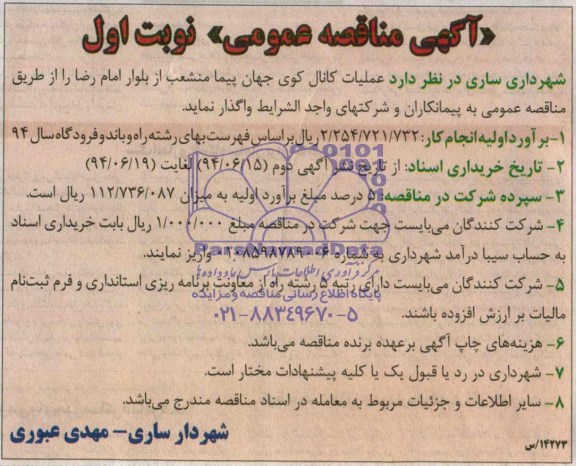 «آگهی مناقصه عمومی» نوبت اول
شهرداری ساری در نظر دارد عملیات کانال کوی جهان پیما منشعب از بلوار امام رضا را از طریق
مناقصه عمومی به پیمانکاران و شرکتهای واجد الشرایط واگذار نماید.
۱- برآورد اولیه انجام کار: ۲/۲۵۴/۷۲۱/۷۳۲ ریال براساس فهرست بهای رشته راه و باند و فرودگاه سال ۹۴
۲- تاریخ خریداری اسناد: از تاریخ نشر آگهی دوم (۹۴/۰۶/۱۵) لغایت (۹۴/۰۶/۱۹)
۳- سپرده شرکت در مناقصه: ۵ درصد مبلغ برآورد اولیه به میزان ۱۱۲/۷۳۶/۰۸۷ ریال است.
۴- شرکت کنندگان می‌بایست جهت شرکت در مناقصه مبلغ ۱/۰۰۰/۰۰۰ ریال بابت خریداری اسناد
به حساب سیبا درآمد شهرداری به شماره ۰۱۰۸۵۹۸۷۸۹۰۰۶ واریز نمایند.
۵- شرکت کنندگان می‌بایست دارای رتبه ۵ رشته راه از معاونت برنامه ریزی استانداری و فرم ثبت‌نام
مالیات بر ارزش افزوده باشند.
۶- هزینه‌های چاپ آگهی برعهده برنده مناقصه می‌باشد.
۷- شهرداری در رد یا قبول یک یا کلیه پیشنهادات مختار است.
۸- سایر اطلاعات و جزئیات مربوط به معامله در اسناد مناقصه مندرج می‌باشد.
شهردار ساری – مهدی عبوری
۱۴۲۷۳/س
ParsNamadData
پایگاه اطلاع رسانی مناقصه و مزایده
۰۲۱-۸۸۳۴۹۶۷۰-۵